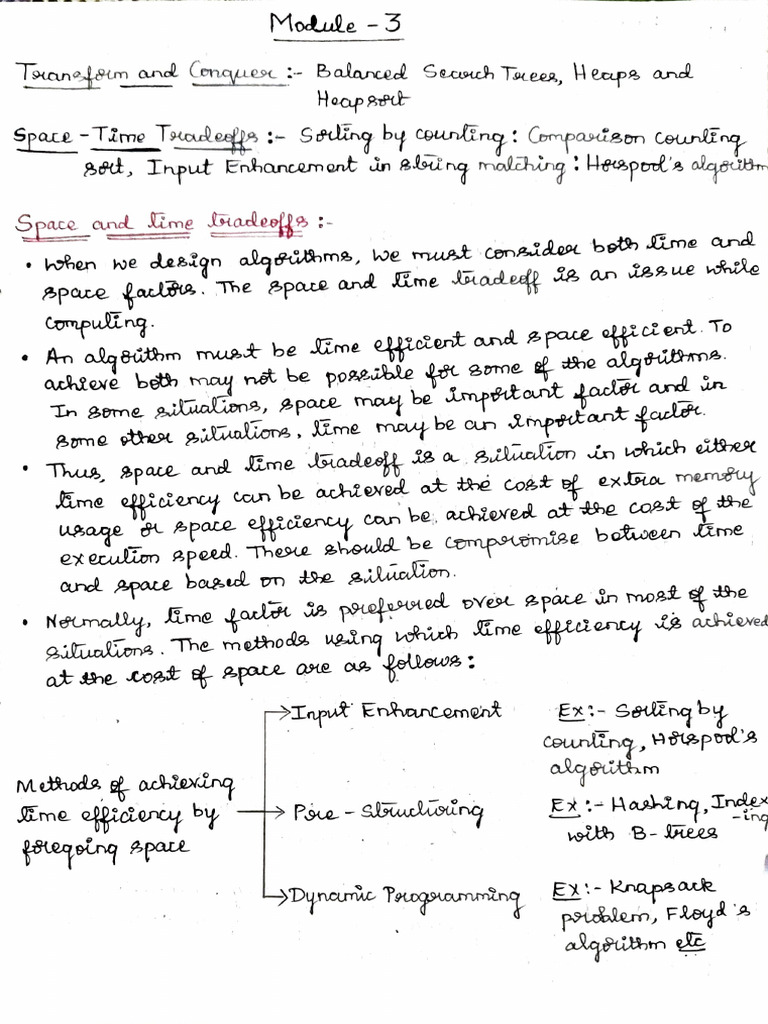 Module - 3
Transform and Conquer :- Balanced Search Trees, Heaps and
Heapsort
Space - Time Tradeoffs :- Sorting by counting : Comparison counting
sort, Input Enhancement in string matching : Horspool's algorithm
Space and time tradeoffs :-
• When we design algorithms, we must consider both time and
space factors. The space and time tradeoff is an issue while
computing.
• An algorithm must be time efficient and space efficient. To
achieve both may not be possible for some of the algorithms.
In some situations, space may be important factor and in
some other situations, time may be an important factor.
• Thus, space and time tradeoff is a situation in which either
time efficiency can be achieved at the cost of extra memory
usage or space efficiency can be achieved at the cost of the
execution speed. There should be compromise between time
and space based on the situation.
• Normally, time factor is preferred over space in most of the
situations. The methods using which time efficiency is achieved
at the cost of space are as follows :
Methods of achieving
time efficiency by
foregoing space
Input Enhancement
Ex :- Sorting by
counting, Horspool's
algorithm
Pre - Structuring
Ex :- Hashing, Index
-ing
with B-trees
Dynamic Programming
Ex :- Knapsack
problem, Floyd's
algorithm etc